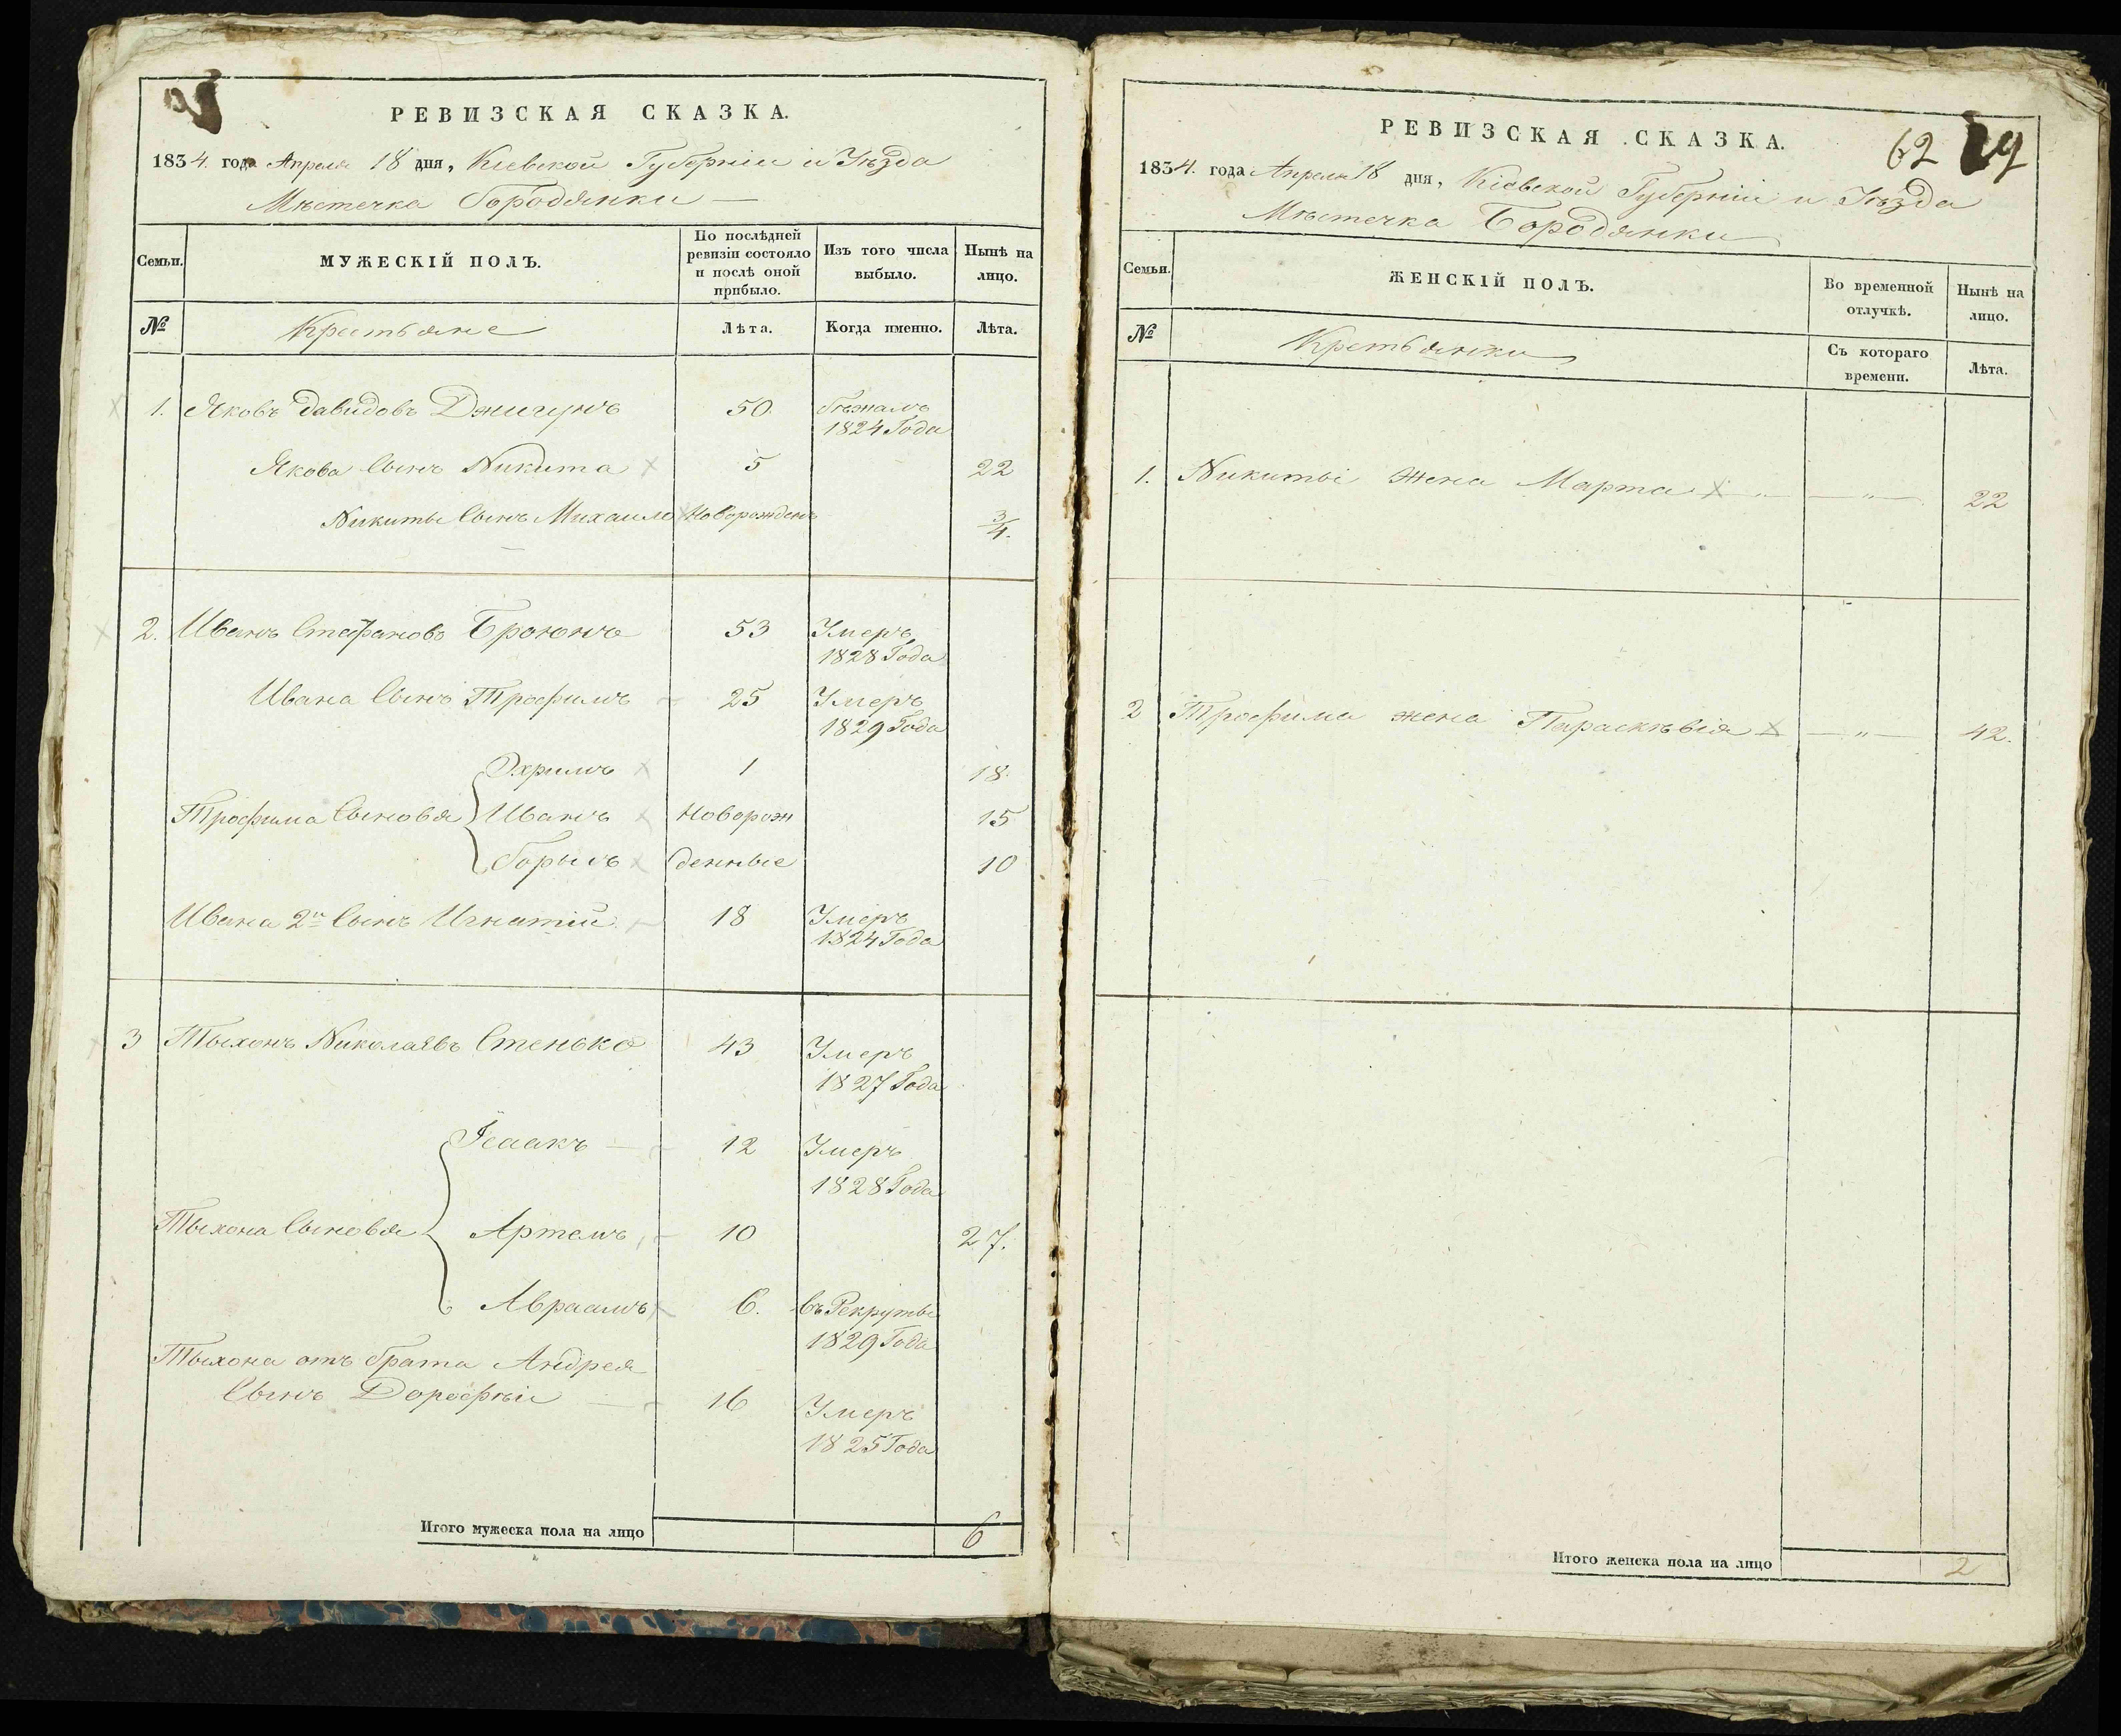 РЕВИЗСКАЯ СКАЗКА.
1834. года Апреля 18 дня, Кіевской Губерніи и Уѣзда
Мѣстечка Бородянки —
Семьи.
МУЖЕСКІЙ ПОЛЪ.
По послѣдней ревизіи состояло и послѣ оной прибыло.
Изъ того числа выбыло.
Нынѣ на лицо.
№
Крестьяне
Лѣта.
Когда именно.
Лѣта.
1. Яковъ Давидовъ Джигунъ 50 бѣжалъ
1824 Года
Якова Сынъ Никита 5 22
Никиты Сынъ Михаило Новорожденъ 3/4.
2. Иванъ Стефановъ 53 Умеръ
1828 Года
Ивана Сынъ Трофимъ 25 Умеръ
1829 Года
Эхримъ 1 18
Трофима Сыновья Иванъ Новорож 15
Борысъ денные 10
Ивана 2й Сынъ Игнатій 18 Умеръ
1824 Года
3 Тыхонъ Николаявъ Стенько 43 Умеръ
1827 Года
Ісаакъ — 12 Умеръ
1828 Года
Тыхона Сыновья Артемъ 10 27.
Авраамъ 6. въ Рекруты
1829 Года
Тыхона отъ брата Андрея
Сынъ Дорофѣй 16 Умеръ
1825 Года
Итого мужеска пола на лицо 6
62
РЕВИЗСКАЯ СКАЗКА.
1834. года Апреля 18 дня, Кіевской Губерніи и Уѣзда
Мѣстечка Бородянки
Семьи.
ЖЕНСКІЙ ПОЛЪ.
Во временной отлучкѣ.
Нынѣ на лицо.
№
Крестьянки
Съ котораго времени.
Лѣта.
1. Никиты жена Марта — " — 22
2 Трофима жена Параскѣвія — " — 42.
Итого женска пола на лицо 2